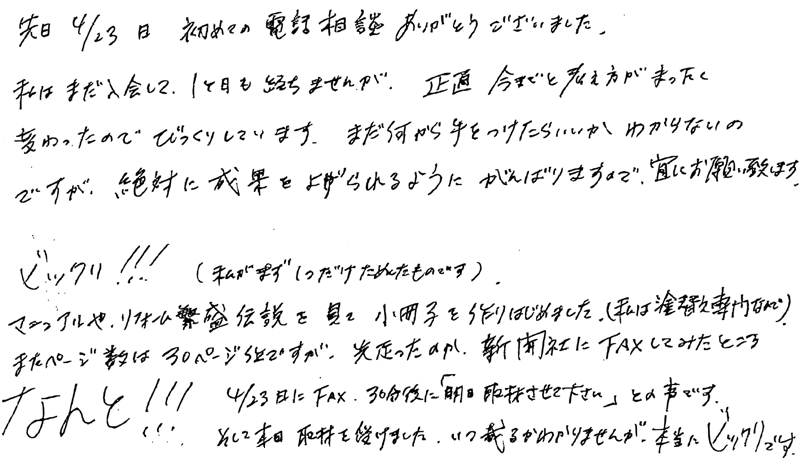 先日 4/23日 初めての電話相談ありがとうございました。
私はまだ入会して、1ヶ月も経ちませんが、正直 今までと考え方がまったく
変わったのでびっくりしています。まだ何から手をつけたらいいかわからないの
ですが、絶対に成果を上げられるようにがんばりますので、宜しくお願い致します。
ビックリ!!! (私がまず1つだけためしたものです)。
マニュアルや、リフォーム繁盛伝説を見て 小冊子を作りはじめました。(私は塗替え専門なので)
まだページ数は30ページ位ですが、先走ったのか、新聞社にFAXしてみたところ
なんと!!! 4/23日にFAX、30分後に「明日取材させて下さい」との事です。
そして本日 取材を受けました。いつ載るかわかりませんが、本当にビックリです。